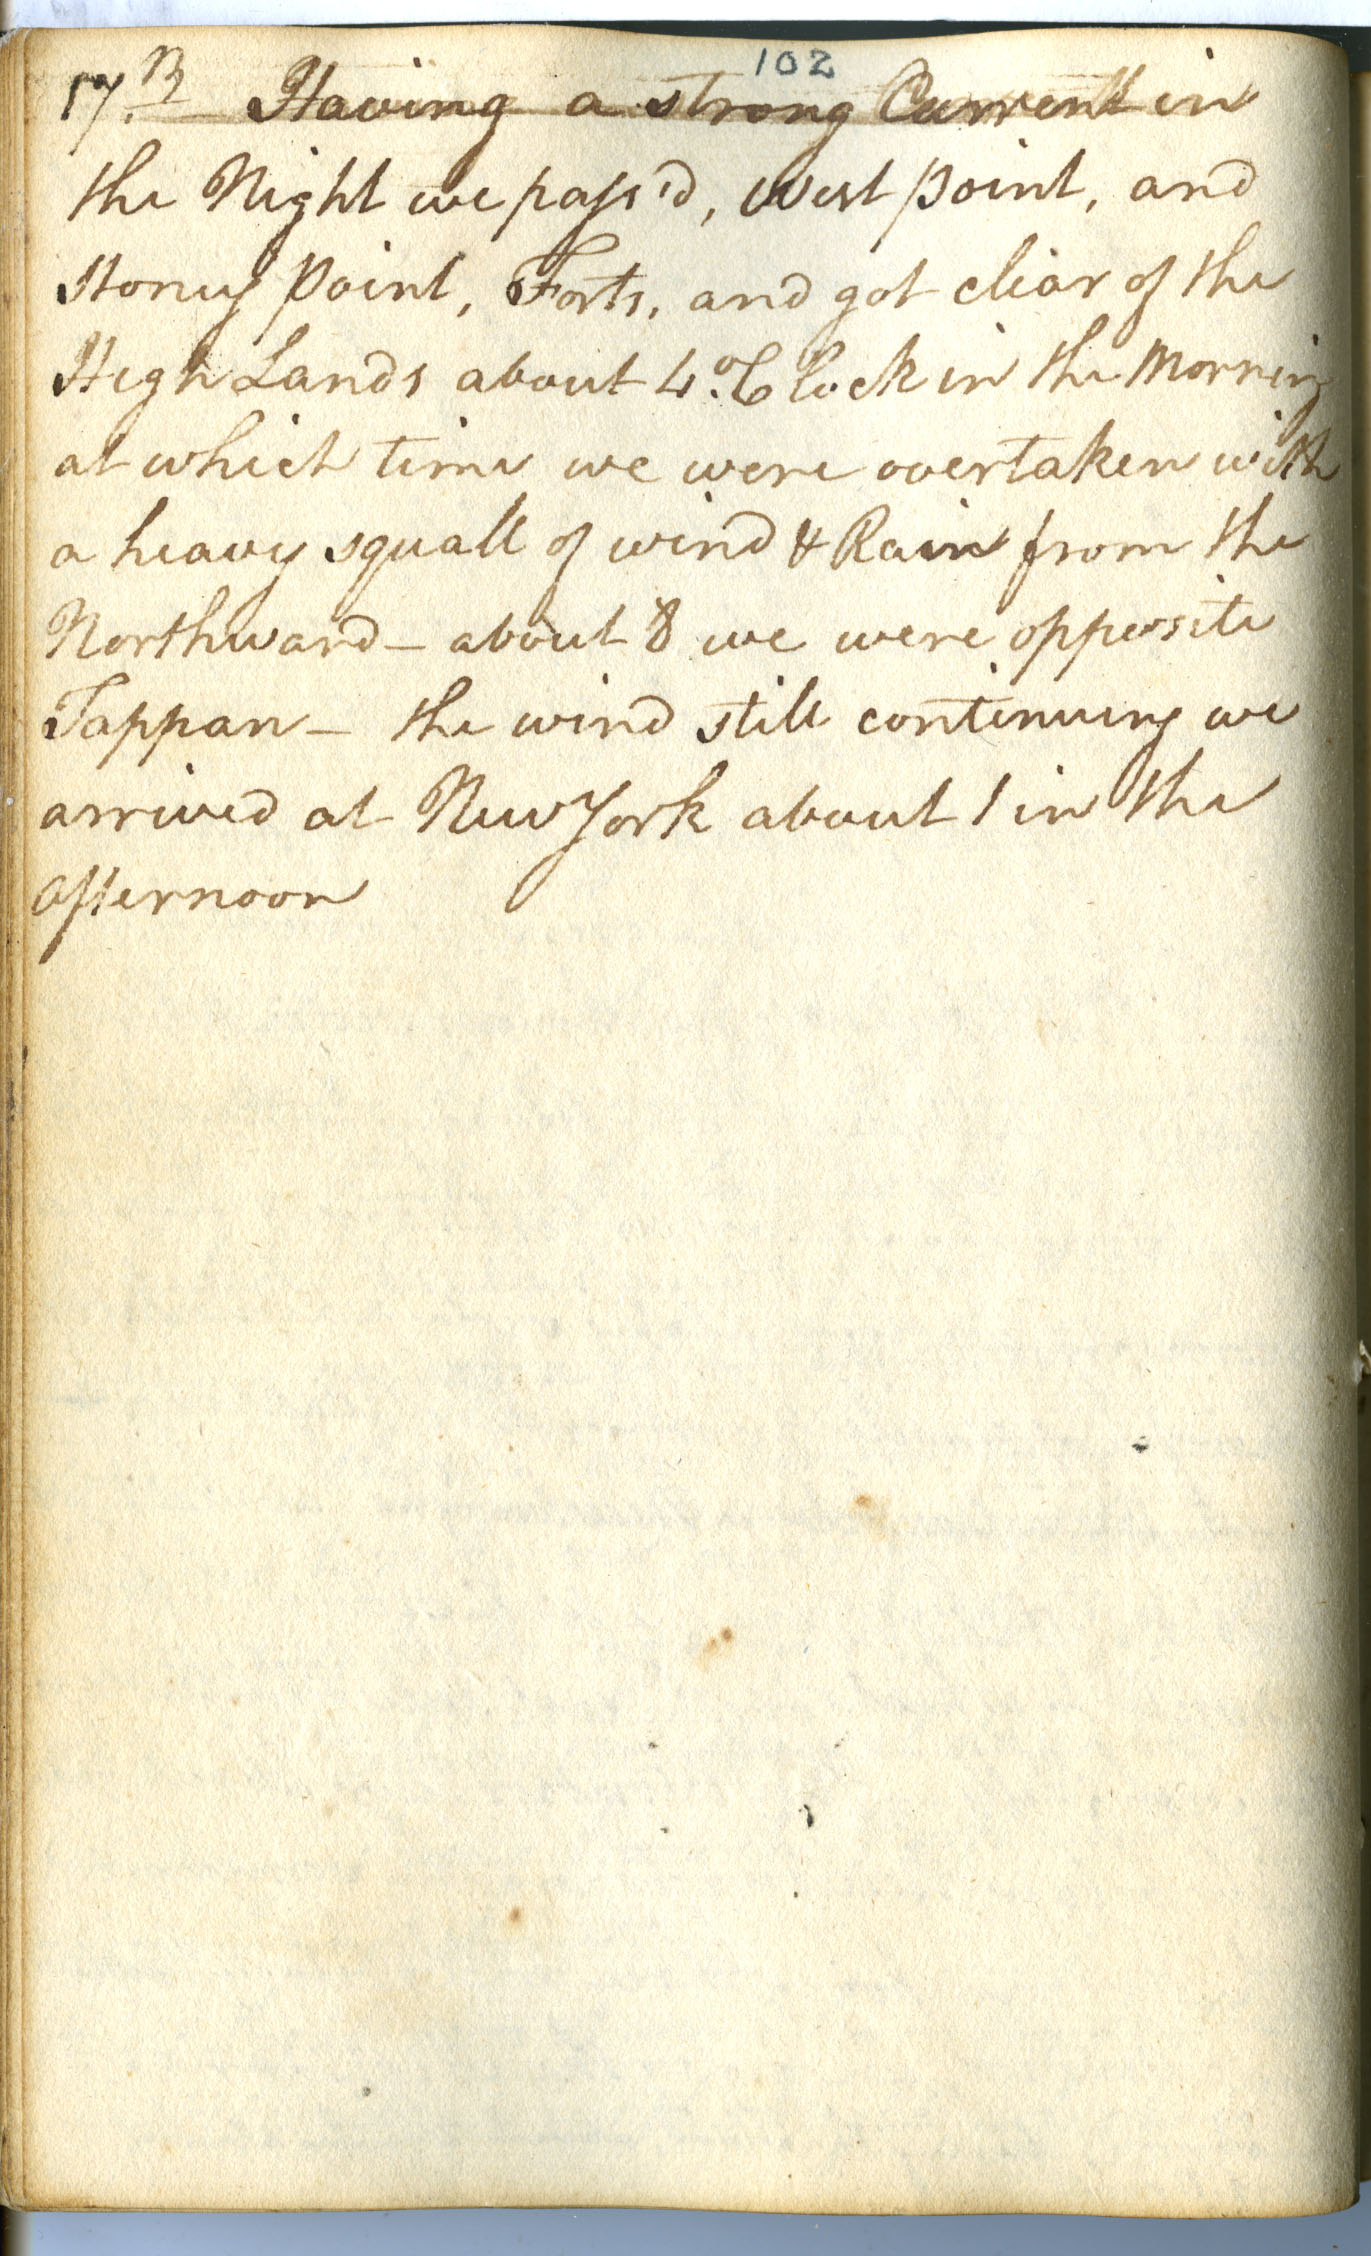 102
17.th Having a strong Current in
the Night we pass'd, West point, and
Stoney Point, Forts, and got clear of the
High Lands about 4 oClock in the Morning
at which time we were overtaken with
a heavy squall of wind & Rain from the
Northward – about 8 we were opposite
Tappan – the wind still continuing we
arrived at New York about 1 in the
afternoon